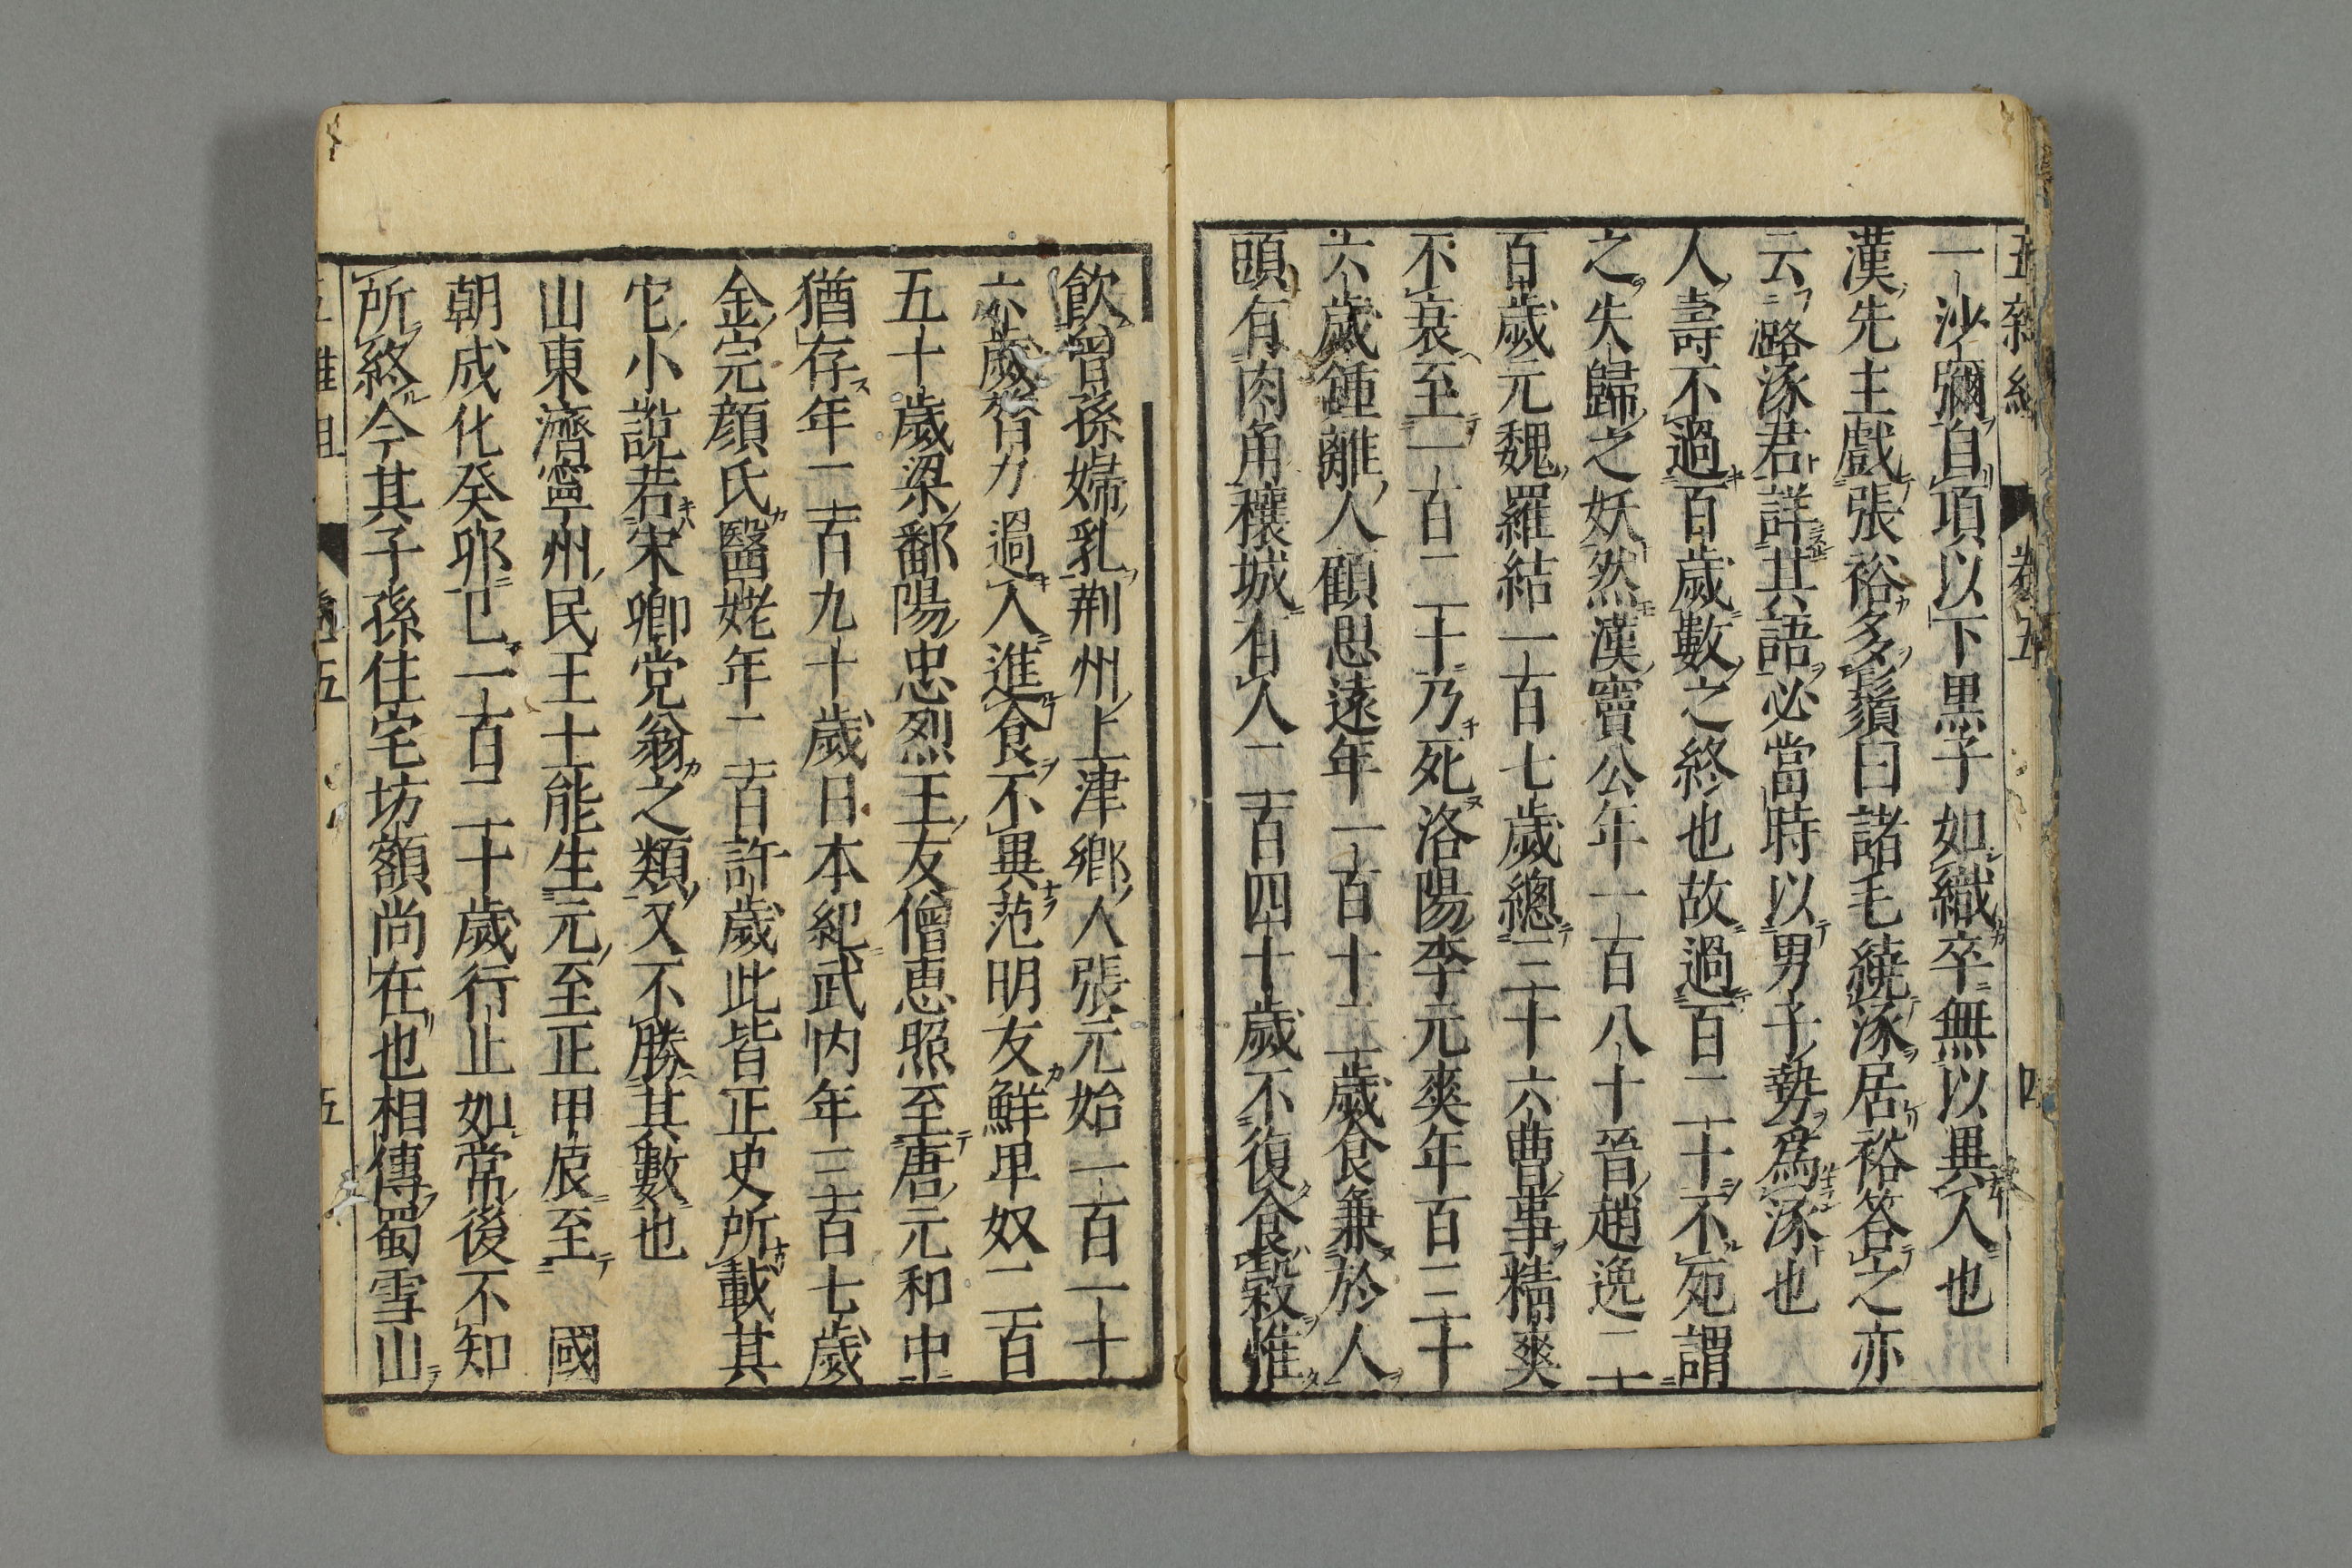 五雜組 卷五 四
一沙彌自項以下黒子如織卒無以異人也
漢先主戲張裕多鬚曰諸毛繞涿居裕答之亦
云潞涿君詳其語必當時以男子勢為涿也
人壽不過百歲數之終也故過百二十不死謂
之失歸之妖然漢竇公年一百八十晉趙逸二
百歲元魏羅結一百七歲總三十六曹事精爽
不衰至一百二十乃死洛陽李元爽年百三十
六歲鍾離人顧思遠年一百十二歲食兼於人
頭有肉角穰城有人二百四十歲不復食穀惟
飲曾孫婦乳荆州上津鄉人張元始一百一十
六歲膂力過人進食不異范明友鮮卑奴二百
五十歲梁鄱陽忠烈王友僧惠照至唐元和中
猶存年二百九十歲日本紀武内年三百七歲
金完顏氏醫姥年二百許歲此皆正史所載其
它小說若宋卿党翁之類又不勝其數也
山東濟寧州民王士能生元至正甲辰至 國
朝成化癸卯已一百二十歲行止如常後不知
所終今其子孫住宅坊額尚在也相傳蜀雪山
五雜組 卷五 五